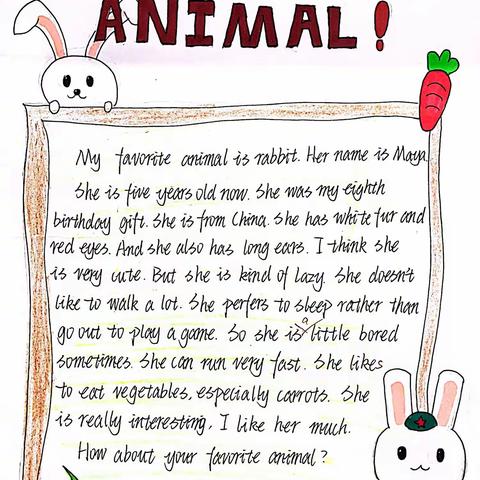 ANIMAL!
My favorite animal is rabbit. Her name is Maya
She is five years old now. She was my eighth
birthday gift. She is from China. She has white fur and
red eyes. And she also has long ears. I think she
is very cute. But she is kind of lazy. She doesn't
like to walk a lot. She perfers to sleep rather than
go out to play a game. So she is a little bored
sometimes. She can run very fast. She likes
to eat vegetables, especially carrots. She
is really interesting, I like her much.
How about your favorite animal?